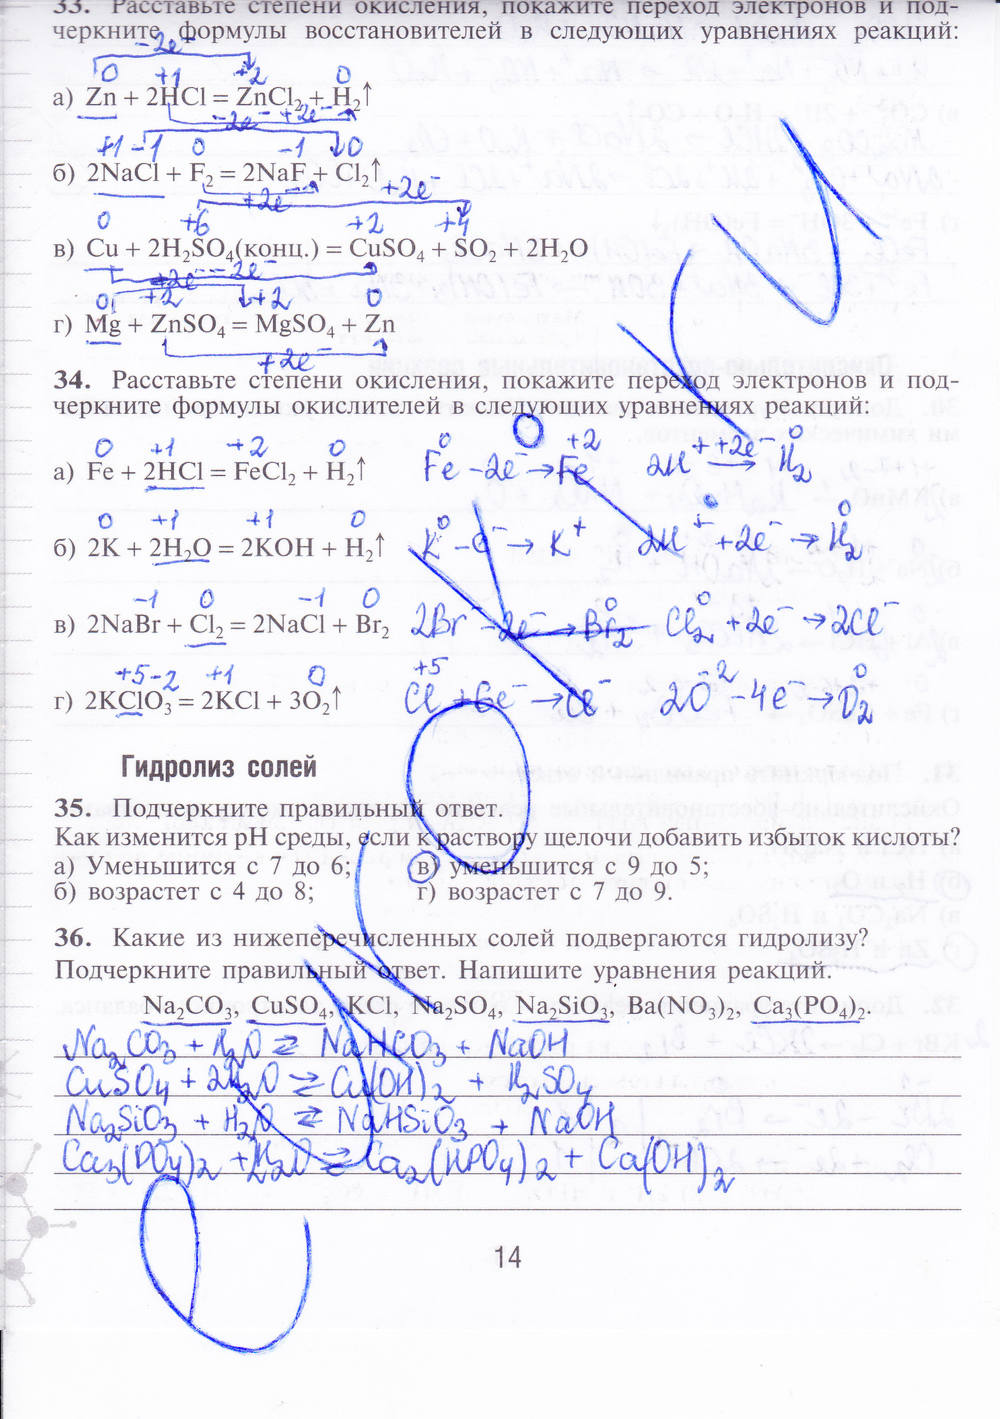 33. Расставьте степени окисления, покажите переход электронов и под-
черкните формулы восстановителей в следующих уравнениях реакций:
-2e⁻
0 +1 +2 0
а) Zn + 2HCl = ZnCl₂ + H₂↑
-2e⁻ +2e⁻
+1 -1 0 -1 0
б) 2NaCl + F₂ = 2NaF + Cl₂↑
+2e⁻ +2e⁻
0 +6 +2 +4
в) Cu + 2H₂SO₄(конц.) = CuSO₄ + SO₂ + 2H₂O
+2e⁻ -2e⁻
0 +2 +2 0
г) Mg + ZnSO₄ = MgSO₄ + Zn
+2e⁻
34. Расставьте степени окисления, покажите переход электронов и под-
черкните формулы окислителей в следующих уравнениях реакций:
0 +1 +2 0 0 +2 0
а) Fe + 2HCl = FeCl₂ + H₂↑ Fe - 2e⁻ → Fe 2H⁺ +2e⁻ → H₂
0 +1 +1 0 0 0
б) 2K + 2H₂O = 2KOH + H₂↑ K - e⁻ → K⁺ 2H⁺ + 2e⁻ → H₂
-1 0 -1 0 0 0
в) 2NaBr + Cl₂ = 2NaCl + Br₂ 2Br⁻ - 2e⁻ → Br₂ Cl₂ + 2e⁻ → 2Cl⁻
+5 -2 +1 0 +5 0
г) 2KClO₃ = 2KCl + 3O₂↑ Cl + 6e⁻ → Cl⁻ 2O⁻² - 4e⁻ → O₂
Гидролиз солей
35. Подчеркните правильный ответ.
Как изменится pH среды, если к раствору щелочи добавить избыток кислоты?
а) Уменьшится с 7 до 6; в) уменьшится с 9 до 5;
б) возрастет с 4 до 8; г) возрастет с 7 до 9.
36. Какие из нижеперечисленных солей подвергаются гидролизу?
Подчеркните правильный ответ. Напишите уравнения реакций.
Na₂CO₃, CuSO₄, KCl, Na₂SO₄, Na₂SiO₃, Ba(NO₃)₂, Ca₃(PO₄)₂.
Na₂CO₃ + H₂O ⇄ NaHCO₃ + NaOH
CuSO₄ + 2H₂O ⇄ Cu(OH)₂ + H₂SO₄
Na₂SiO₃ + H₂O ⇄ NaHSiO₃ + NaOH
Ca₃(PO₄)₂ + H₂O ⇄ Ca₂(HPO₄)₂ + Ca(OH)₂
14